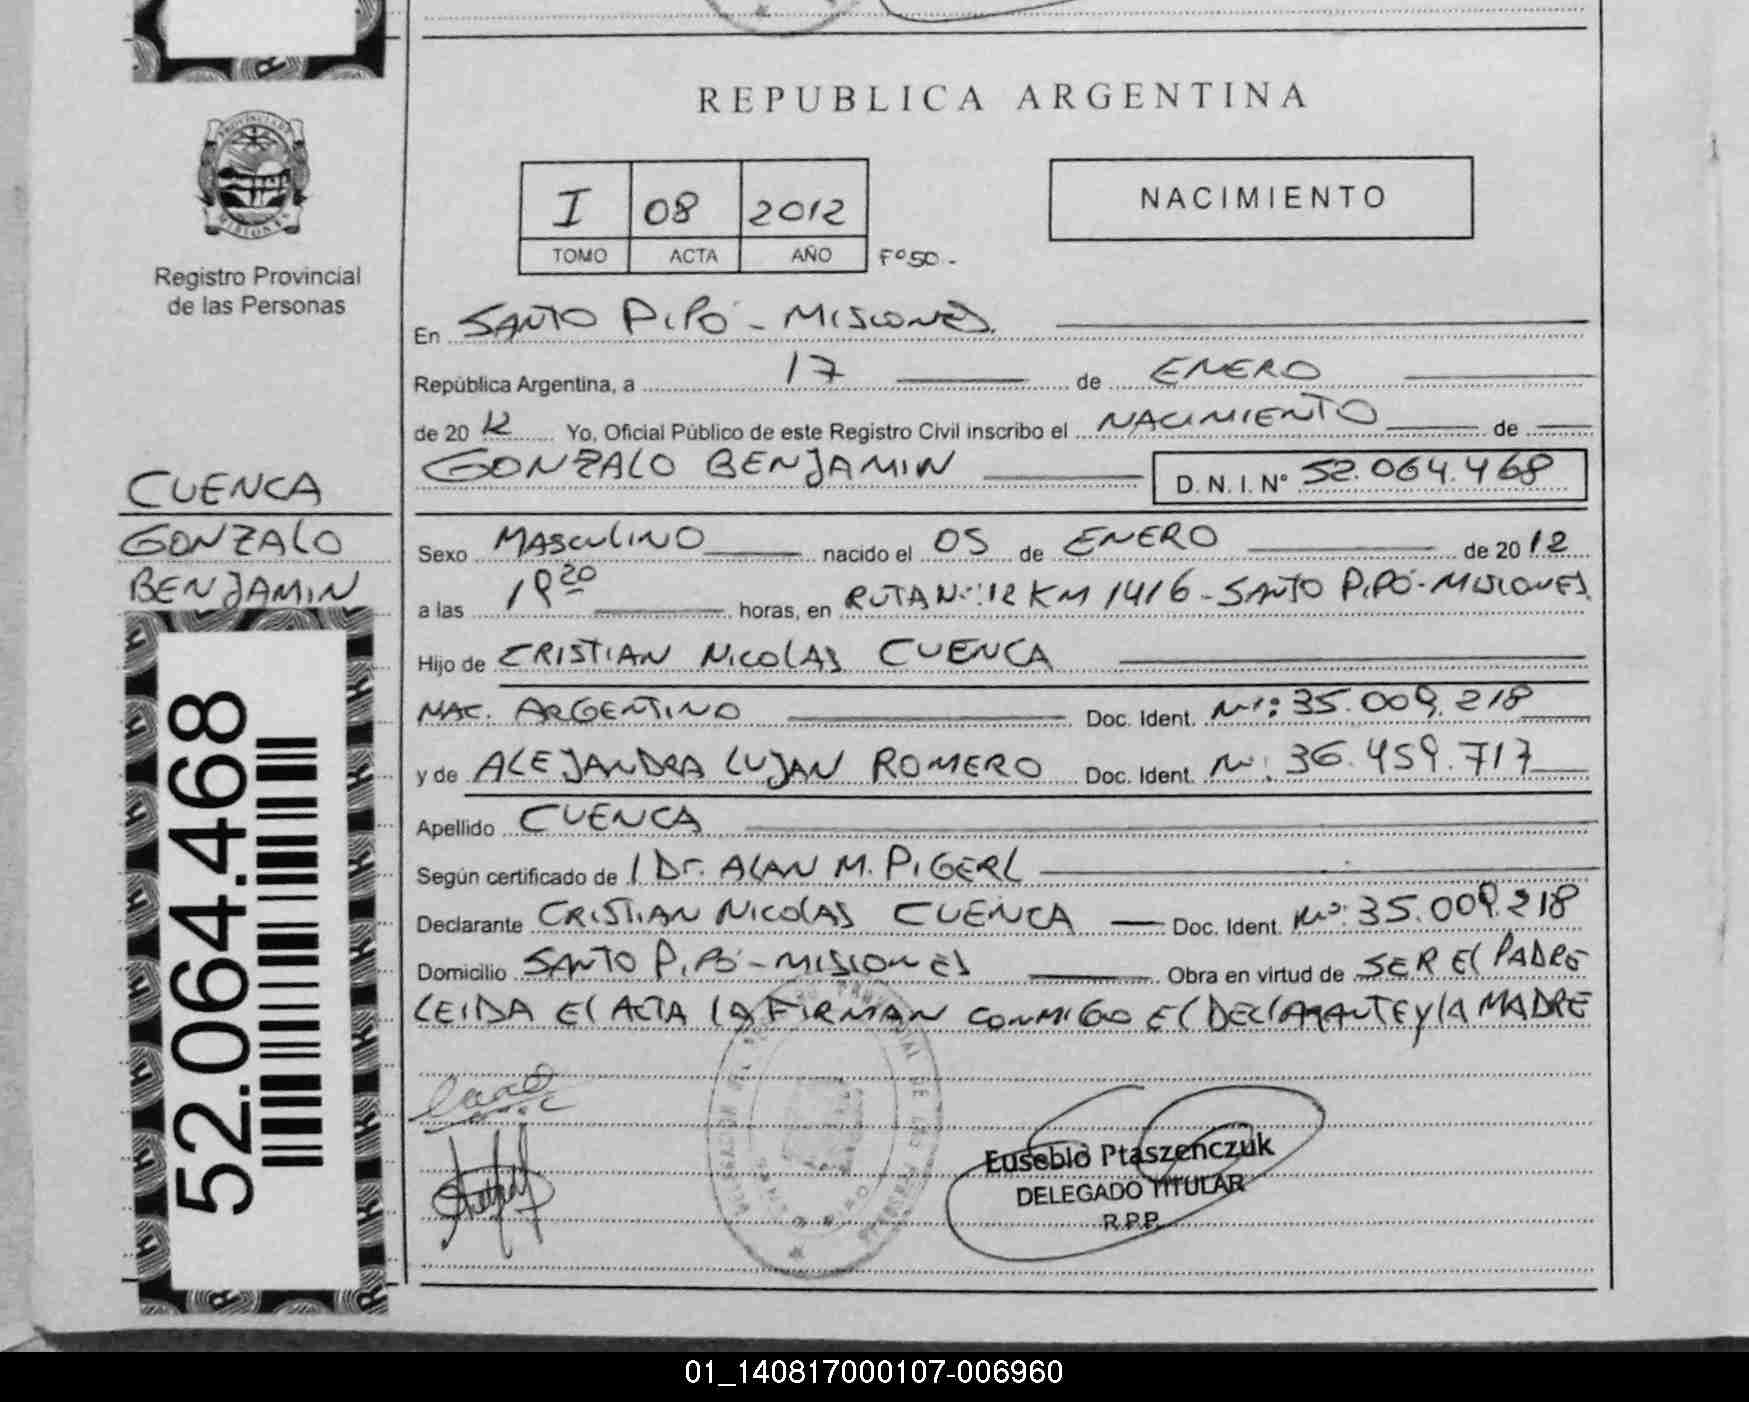 REPUBLICA ARGENTINA
I 08 2012
TOMO ACTA AÑO Fº50.-
NACIMIENTO
Registro Provincial
de las Personas
En SANTO PIPÓ - MISIONES.
República Argentina, a 17 de ENERO
de 2012 Yo, Oficial Público de este Registro Civil inscribo el NACIMIENTO de
GONZALO BENJAMIN D.N.I. Nº 52.064.468
CUENCA
GONZALO
BENJAMIN
52.064.468
Sexo MASCULINO nacido el 05 de ENERO de 2012
a las horas, en RUTA Nº: 12 KM 1416 - SANTO PIPÓ - MISIONES.
Hijo de CRISTIAN NICOLAS CUENCA
NAC. ARGENTINO Doc. Ident. Nº: 35.009.218
y de ALEJANDRA LUJAN ROMERO Doc. Ident. Nº: 36.459.717
Apellido CUENCA
Según certificado de / Dr. ALAN M. PIGERL
Declarante CRISTIAN NICOLAS CUENCA Doc. Ident. Nº: 35.009.218
Domicilio SANTO PIPÓ - MISIONES Obra en virtud de SER El PADRE
LEIDA El ACTA LA FIRMAN CONMIGO El DEClARANTE y lA MADRE
Eusebio Ptaszenczuk
DELEGADO TITULAR
R.P.P.
01_140817000107-006960